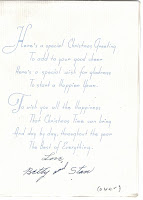 Here's a special Christmas Greeting
To add to your good cheer
Here's a special wish for gladness
To start a Happier Year.
To wish you all the Happiness
That Christmas Time can bring
And day by day, throughout the year
The Best of Everything.
Love,
Betty and Stan
(over)